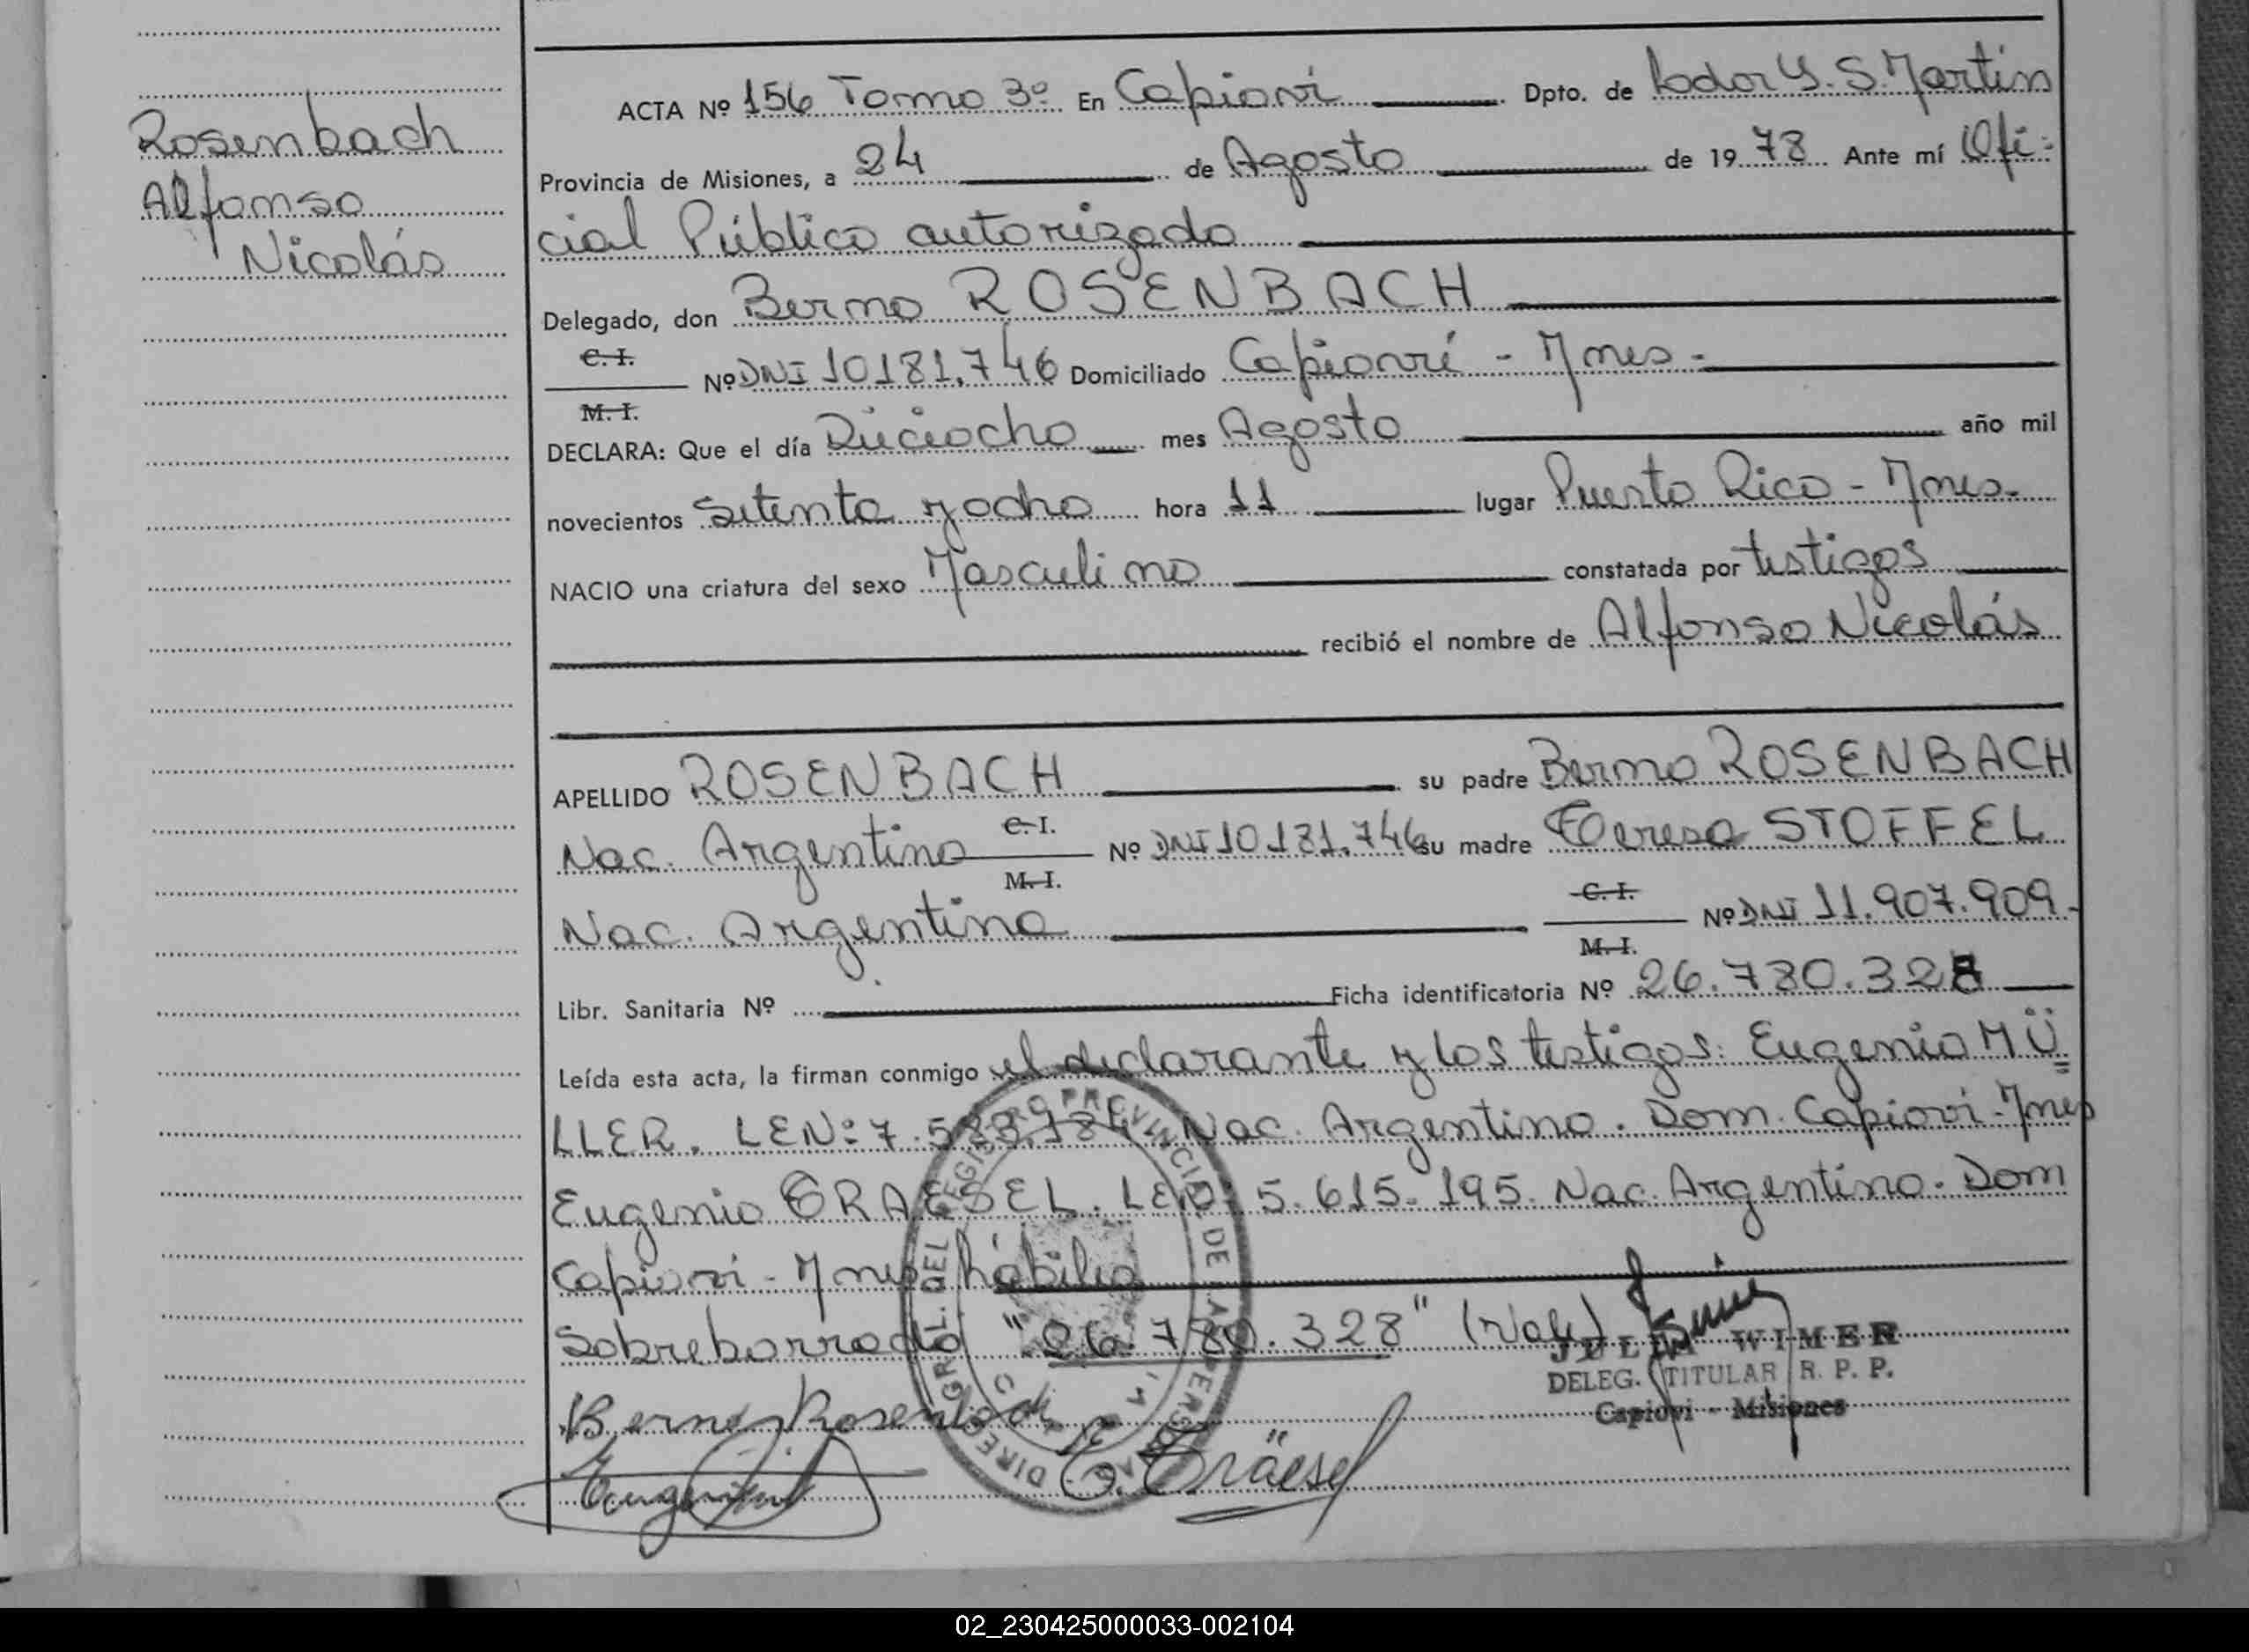 Rosenbach
Alfonso
Nicolás
ACTA Nº 156 Tomo 3º En Capioví Dpto. de Lddor G. S. Martín
Provincia de Misiones, a 24 de Agosto de 1978 Ante mí Ofi-
cial Público autorizado
Delegado, don Berno ROSENBACH
C. I.
Nº DNI 10181.746 Domiciliado Capioví - Mnes -
M. I.
DECLARA: Que el día Dieciocho mes Agosto año mil
novecientos setenta y ocho hora 11 lugar Puerto Rico - Mnes.
NACIO una criatura del sexo Masculino constatada por testigos
recibió el nombre de Alfonso Nicolás
APELLIDO ROSENBACH su padre Berno ROSENBACH
Nac. Argentino C. I. Nº DNI 10181.746 su madre Teresa STOFFEL
M. I.
Nac. Argentina C. I. Nº DNI 11.907.909.-
M. I.
Libr. Sanitaria Nº Ficha identificatoria Nº 26.780.328
Leída esta acta, la firman conmigo el declarante y los testigos: Eugenio MÜ
LLER. LEN: 7. Nac. Argentino. Dom. Capioví - Mnes
Eugenio GRAESEL. LEN: 5.615.195. Nac. Argentino. Dom
Capioví - Mnes hábiles
Sobreborrado "26.780.328" (vale)
JULIA WIMER
DELEG. TITULAR R. P. P.
Capiovi - Misiones
Berno Rosenbach
E. Gräesel
02_230425000033-002104